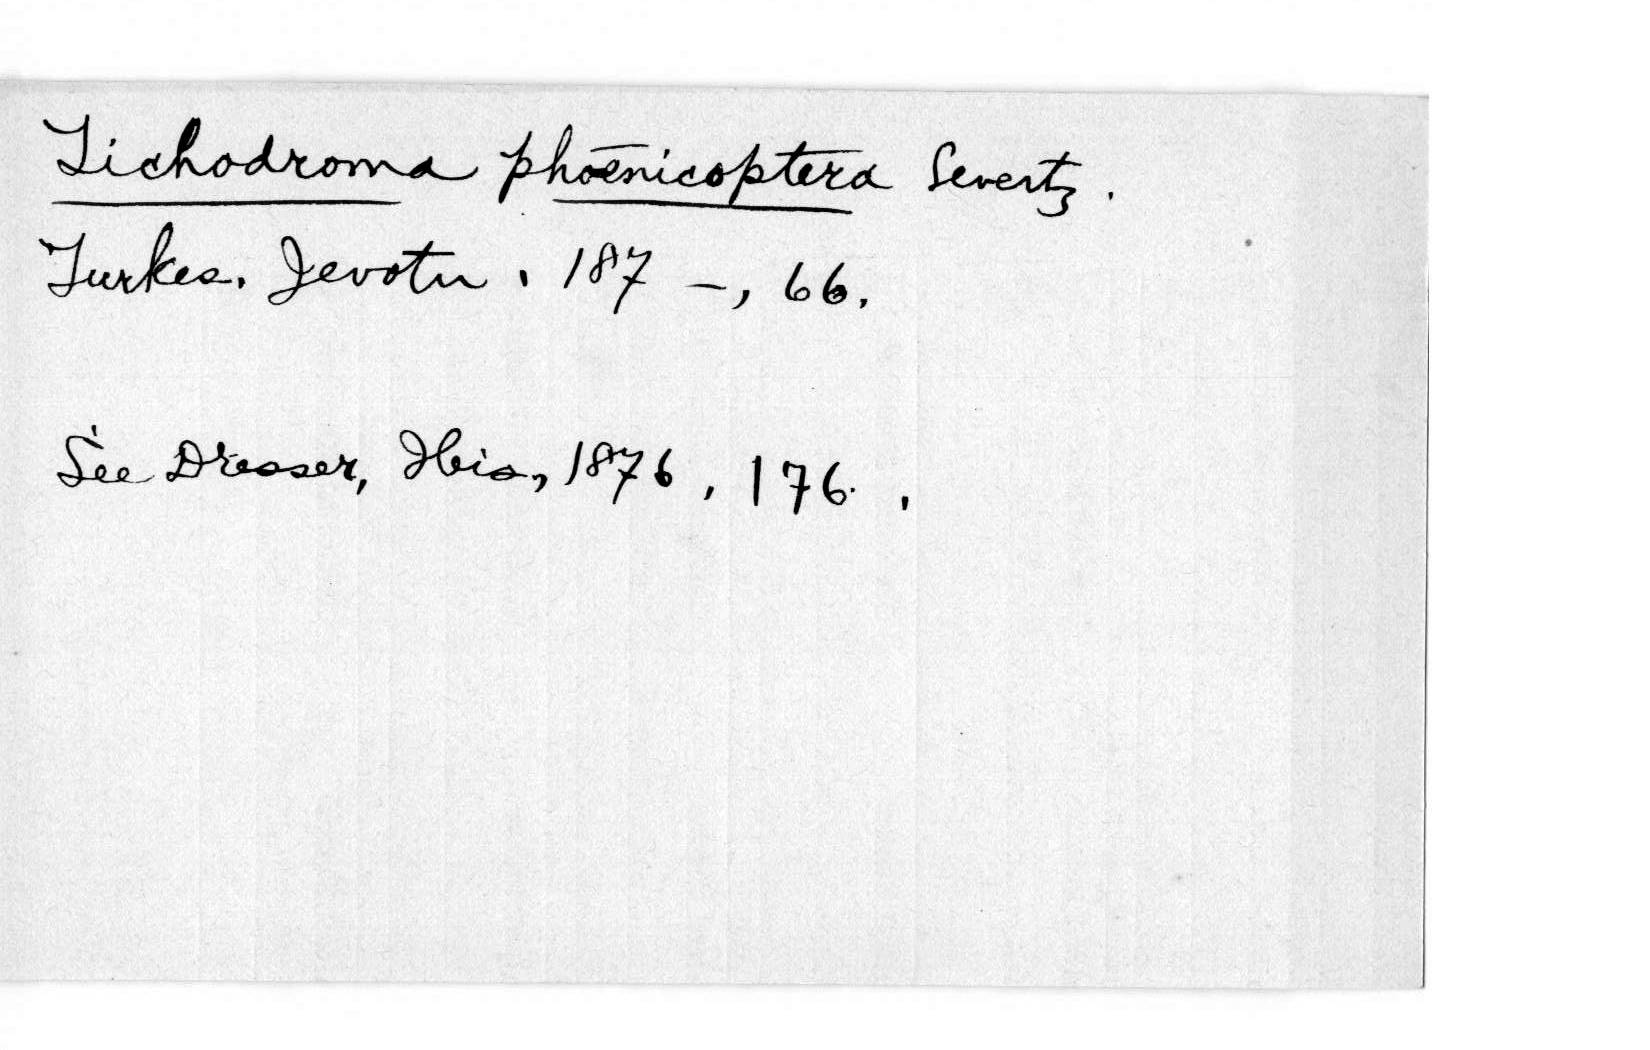 Tichodroma phoenicoptera Severtz.
Turkes. Jevotn. 187 -, 66.
See Dresser, Ibis, 1876, 176.